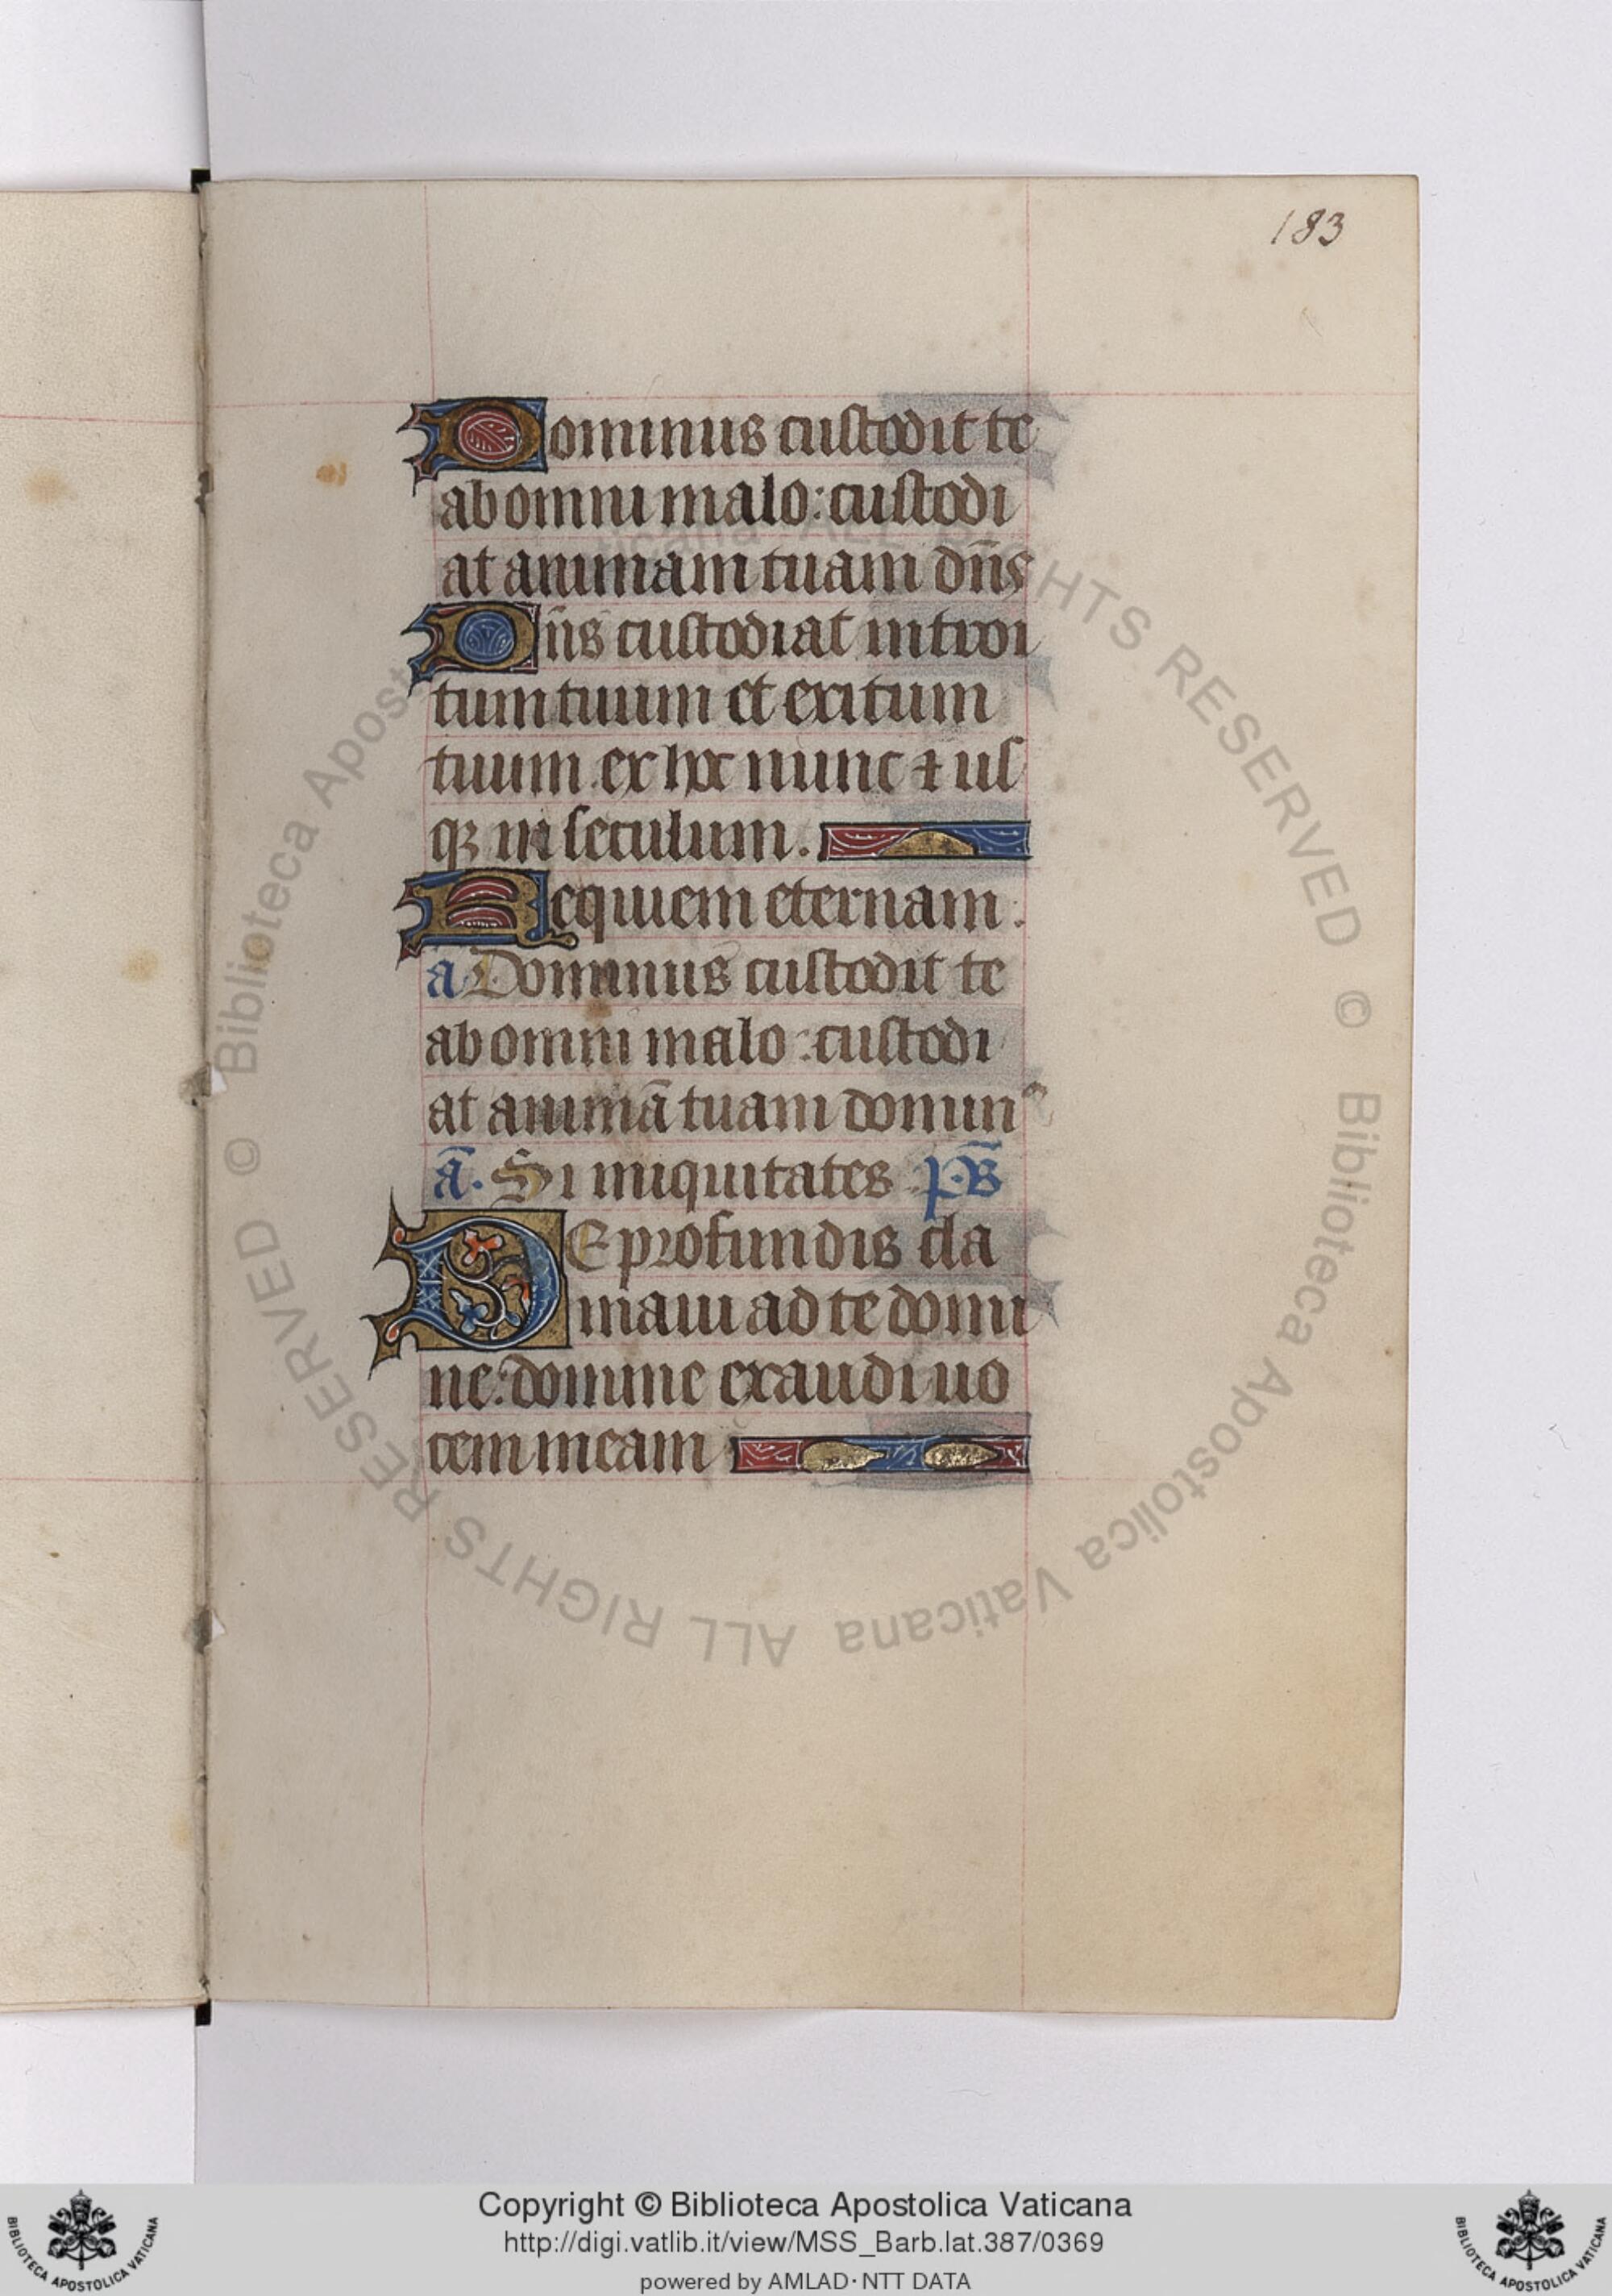 183
Dominus custodit te
ab omni malo: custodi
at animam tuam dn̄s
Dn̄s custodiat introi
tum tuum et exitum
tuum ex hoc nunc ⁊ us
qꝫ in seculum.
Requiem eternam.
a Dominus custodit te
ab omni malo: custodi
at animā tuam domin⁹
ā. Si iniquitates p̄.s̄
DE profundis cla
maui ad te domi
ne: domine exaudi uo
cem meam
© Biblioteca Apostolica Vaticana ALL RIGHTS RESERVED © Biblioteca Apostolica Vaticana ALL RIGHTS RESERVED
Copyright © Biblioteca Apostolica Vaticana
http://digi.vatlib.it/view/MSS_Barb.lat.387/0369
powered by AMLAD·NTT DATA
BIBLIOTECA APOSTOLICA VATICANA
BIBLIOTECA APOSTOLICA VATICANA